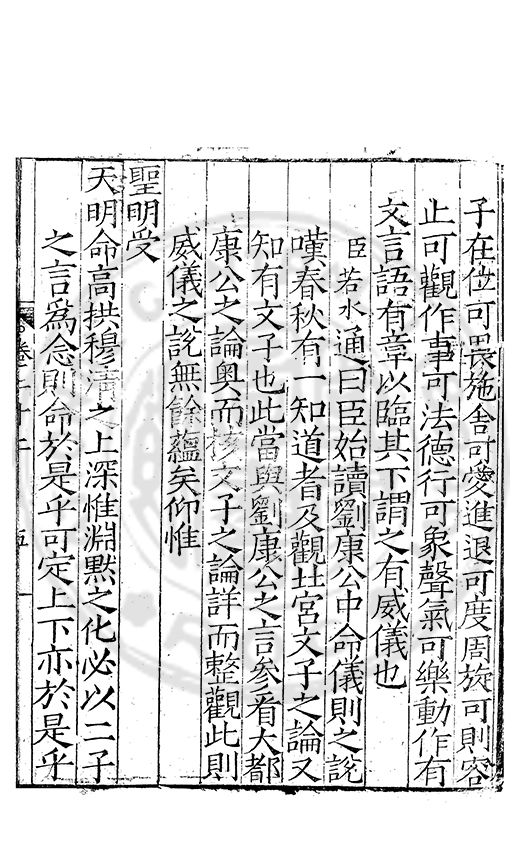 子在位可畏施舍可愛進退可度周旋可則容
止可觀作事可法德行可象聲氣可樂動作有
文言語有章以臨其下謂之有威儀也
臣若水通曰臣始讀劉康公中命儀則之說
嘆春秋有一知道者及觀北宮文子之論又
知有文子也此當與劉康公之言參看大都
康公之論奧而核文子之論詳而整觀此則
威儀之說無餘蘊矣仰惟
聖明受
天明命高拱穆清之上深惟淵默之化必以二子
之言爲念則命於是乎可定上下亦於是乎
卷二十二
五